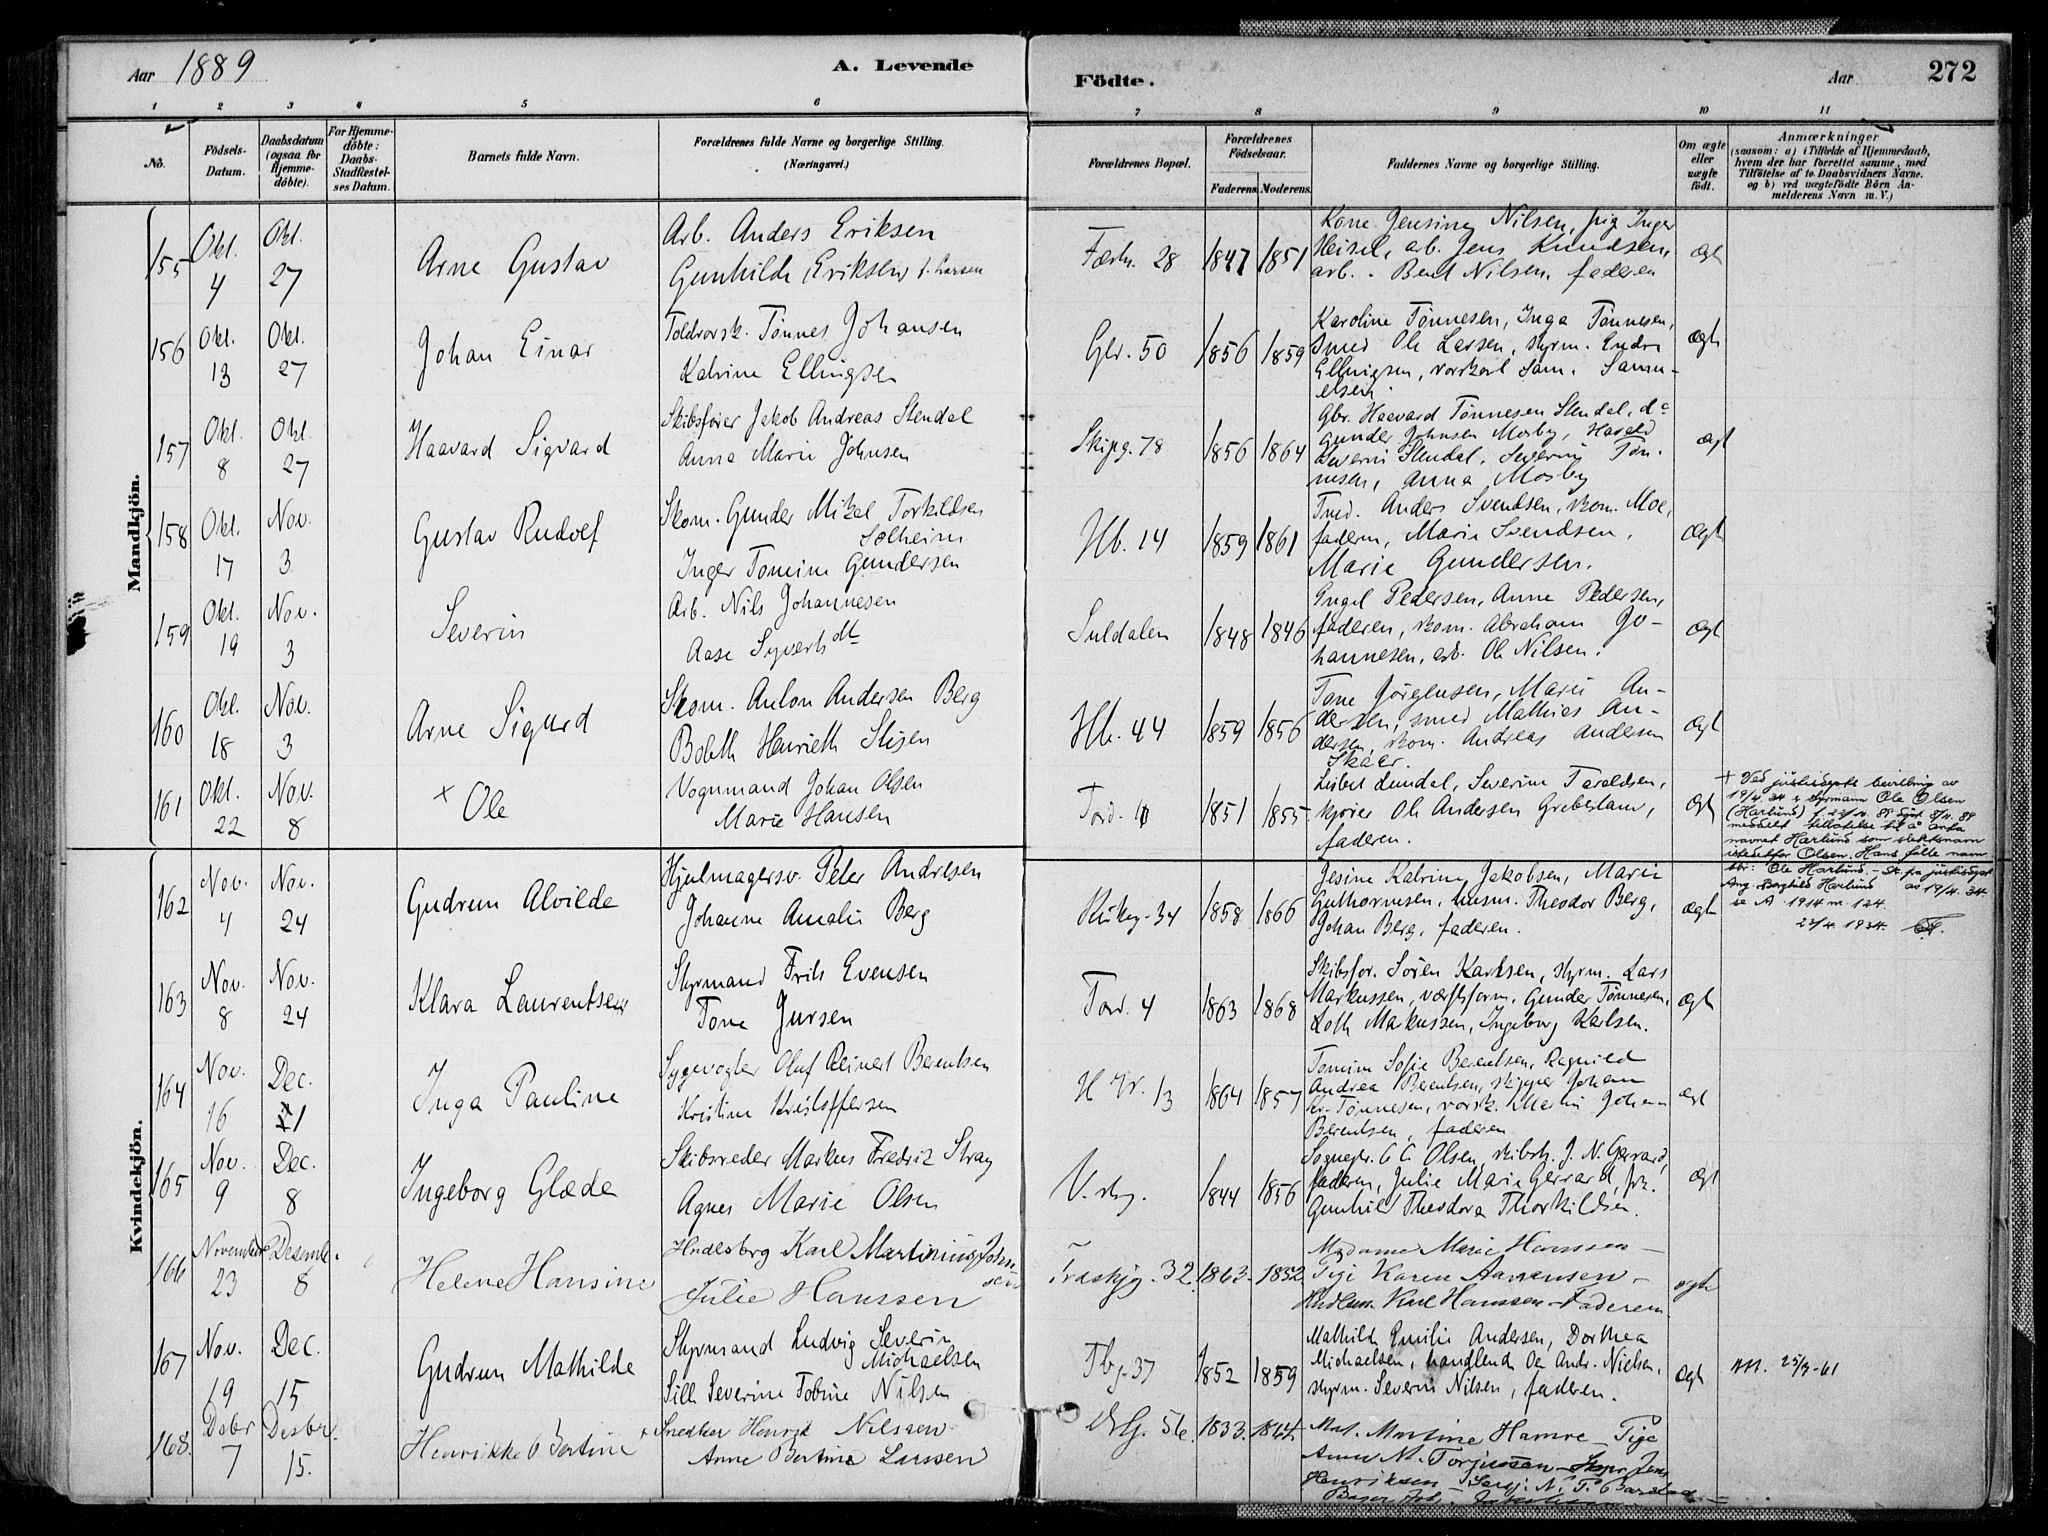 Aar 1889
A. Levende
Födte.
Aar
272
1 2 3 4 5 6 7 8 9 10 11
No.
Födsels-Datum.
Daabsdatum (ogsaa for Hjemme-döbte).
For Hjemme-döbte: Daabs-Stadfæstel-ses Datum.
Barnets fulde Navn.
Forældrenes fulde Navne og borgerlige Stilling. (Næringsvei.)
Forældrenes Bopæl.
Forældrenes Födselsaar.
Faderens. Moderens.
Faddernes Navne og borgerlige Stilling.
Om ægte eller uægte födt.
Anmærkninger
(saasom: a) i Tilfælde af Hjemmedaab,
hvem der har forrettet samme, med
Tilföielse af to Daabsvidners Navne.
og b) ved uægtefödte Börn An-
melderens Navn m. V.)
Mandkjön.
155 Okt. 4 Okt. 27 Arne Gustav
Arb. Anders Eriksen
Gunhilde Eriksen f. Larsen
Fæstn. 28 1847 1851
Kone Jensine Nilsen, pig. Inger
Heisel, arb. Jens Knudsen,
arb. Bent Nilsen, faderen
ægt
156 Okt. 13 Okt. 27 Johan Einar
Toldrorsk. Tønnes Johansen
Katrine Ellingsen
Glv. 50 1856 1859
Karoline Tønnesen, Inga Tønnesen,
Smed Ole Larsen, styrm. Endre
Ellingsen, Sam. Samu-
elsen.
ægt
157 Okt. 8 Okt. 27 Haavard Sigvard
Skibsfører Jakob Andreas Stendal
Anna Marie Johnsen
Skipg. 78 1856 1864
Gbr. Haavard Tønnesen Stendal, do
Gunder Johnsen Mosby, Harald
Severin Stendal, Severin Tøn-
nesen, Anna Mosby
ægt
158 Okt. 17 Nov. 3 Gustav Rudolf
Skom. Gunder Mikal Torkildsen
Solheim
Inger Tomine Gundersen
Hb. 14 1859 1861
Anders Svendsen, skom. Moe,
faderen, Marie Svendsen,
Marie Gundersen.
ægt
159 Okt. 19 Nov. 3 Severin
Arb. Nils Johannesen
Aase Syverts dt
Suldalen 1848 1846
Ingel Pedersen, Anne Pedersen,
faderen, skom. Abraham Jo-
hannesen, arb. Ole Nilsen.
ægt
160 Okt. 18 Nov. 3 Arne Sigurd
Skom. Anton Andersen Berg
Bolette Henriette
Hb. 44 1859 1856
Tone Jørgensen, Marie An-
dersen, smed Mathias An-
dersen, skom. Andreas Andersen
Skaar.
ægt
161 Okt. 22 Nov. 8 + Ole
Vognmand Johan Olsen
Marie Hansen
Tord. 1851 1855
Lisbet Lundal, Severine Taraldsen,
kjører Ole Andersen Grebestam,
faderen.
ægt
+ Ved justisdepts bevilling av
19/4. 34 er styrmann Ole Olsen
(Harlund) f. 22/10. 89 døpt 8/11. 89
meddelt tillatelse til å anta
navnet Harlund som slektsnavn
istedetfor Olsen. Hans fulle navn
blir: Ole Harlund.
Ang. Borghild Harlund
av 19/4. 34.
se A 1914 nr. 124.
23/4. 1934.
Kvindekjön.
162 Nov. 4 Nov. 24 Gudrun Alvilde
Hjulmagersv. Peter Andresen
Johanne Amalie Berg
34 1858 1866
Jesine Katrine Jakobsen, Marie
Guthormsen, husm. Theodor Berg,
Johan Berg, faderen.
ægt
163 Nov. 8 Nov. 24 Klara Laurentsen
Styrmand Frits Evensen
Tone Jursen
Tord. 4 1863 1868
Skibsfør. Søren Karlsen, styrm. Lars
Markussen, værftsform. Gunder Tønnesen,
Markussen, Ingeborg Karlsen.
ægt
164 Nov. 16 Dec. 1 Inga Pauline
Sygevogter Oluf Reinert Berentsen
Kristine Kristoffersen
13 1864 1857
Tomine Sofie Berentsen, Ragnild
Andrea Berentsen, skipper Johan
Kr. Tønnesen, Martin Johan
Berentsen, faderen
ægt
165 Nov. 9 Dec. 8 Ingeborg Glæde
Skibsreder Markus Fredrik Stray
Agnes Marie Olsen
V. stg. 1844 1856
Sognepr. C. C. Olsen, skibsk. J. N. Gerrard,
faderen, Julie Marie Gerrard, frk.
Gunhild Theodora Thorkildsen.
ægt
166 November 23 Desemb. 8 Helene Hansine
Karl Martinius John-
sen
Julie Hanssen
32. 1863. 1852
Madame Marie Hanssen –
Pige Karen Aanensen –
Karl Hanssen – Faderen
ægte
167 Nov. 19 Dec. 15 Gudrun Mathilde
Styrmand Ludvig Severin
Michaelsen
Sille Severine Tobine Nilsen
Tbg. 37 1852 1859
Mathilde Emilie Andersen, Dorthea
Michaelsen, handlende Ole Andr. Nielsen,
styrm. Severin Nilsen, faderen.
ægt
25/9-61
168. Desbr 7 Desbr. 15. Henrikke Bertine
Snedker Henrik Nilssen
Anne Bertine Larssen
56. 1833. 1844.
Mad. Martine Hamre – Pige
Anne M. Torjussen – Jens
Henriksen –